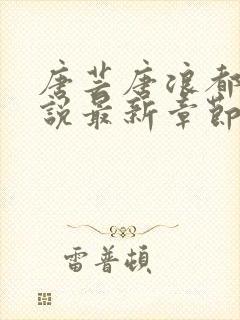 唐芸唐浪都
說最新章節
雷普頓